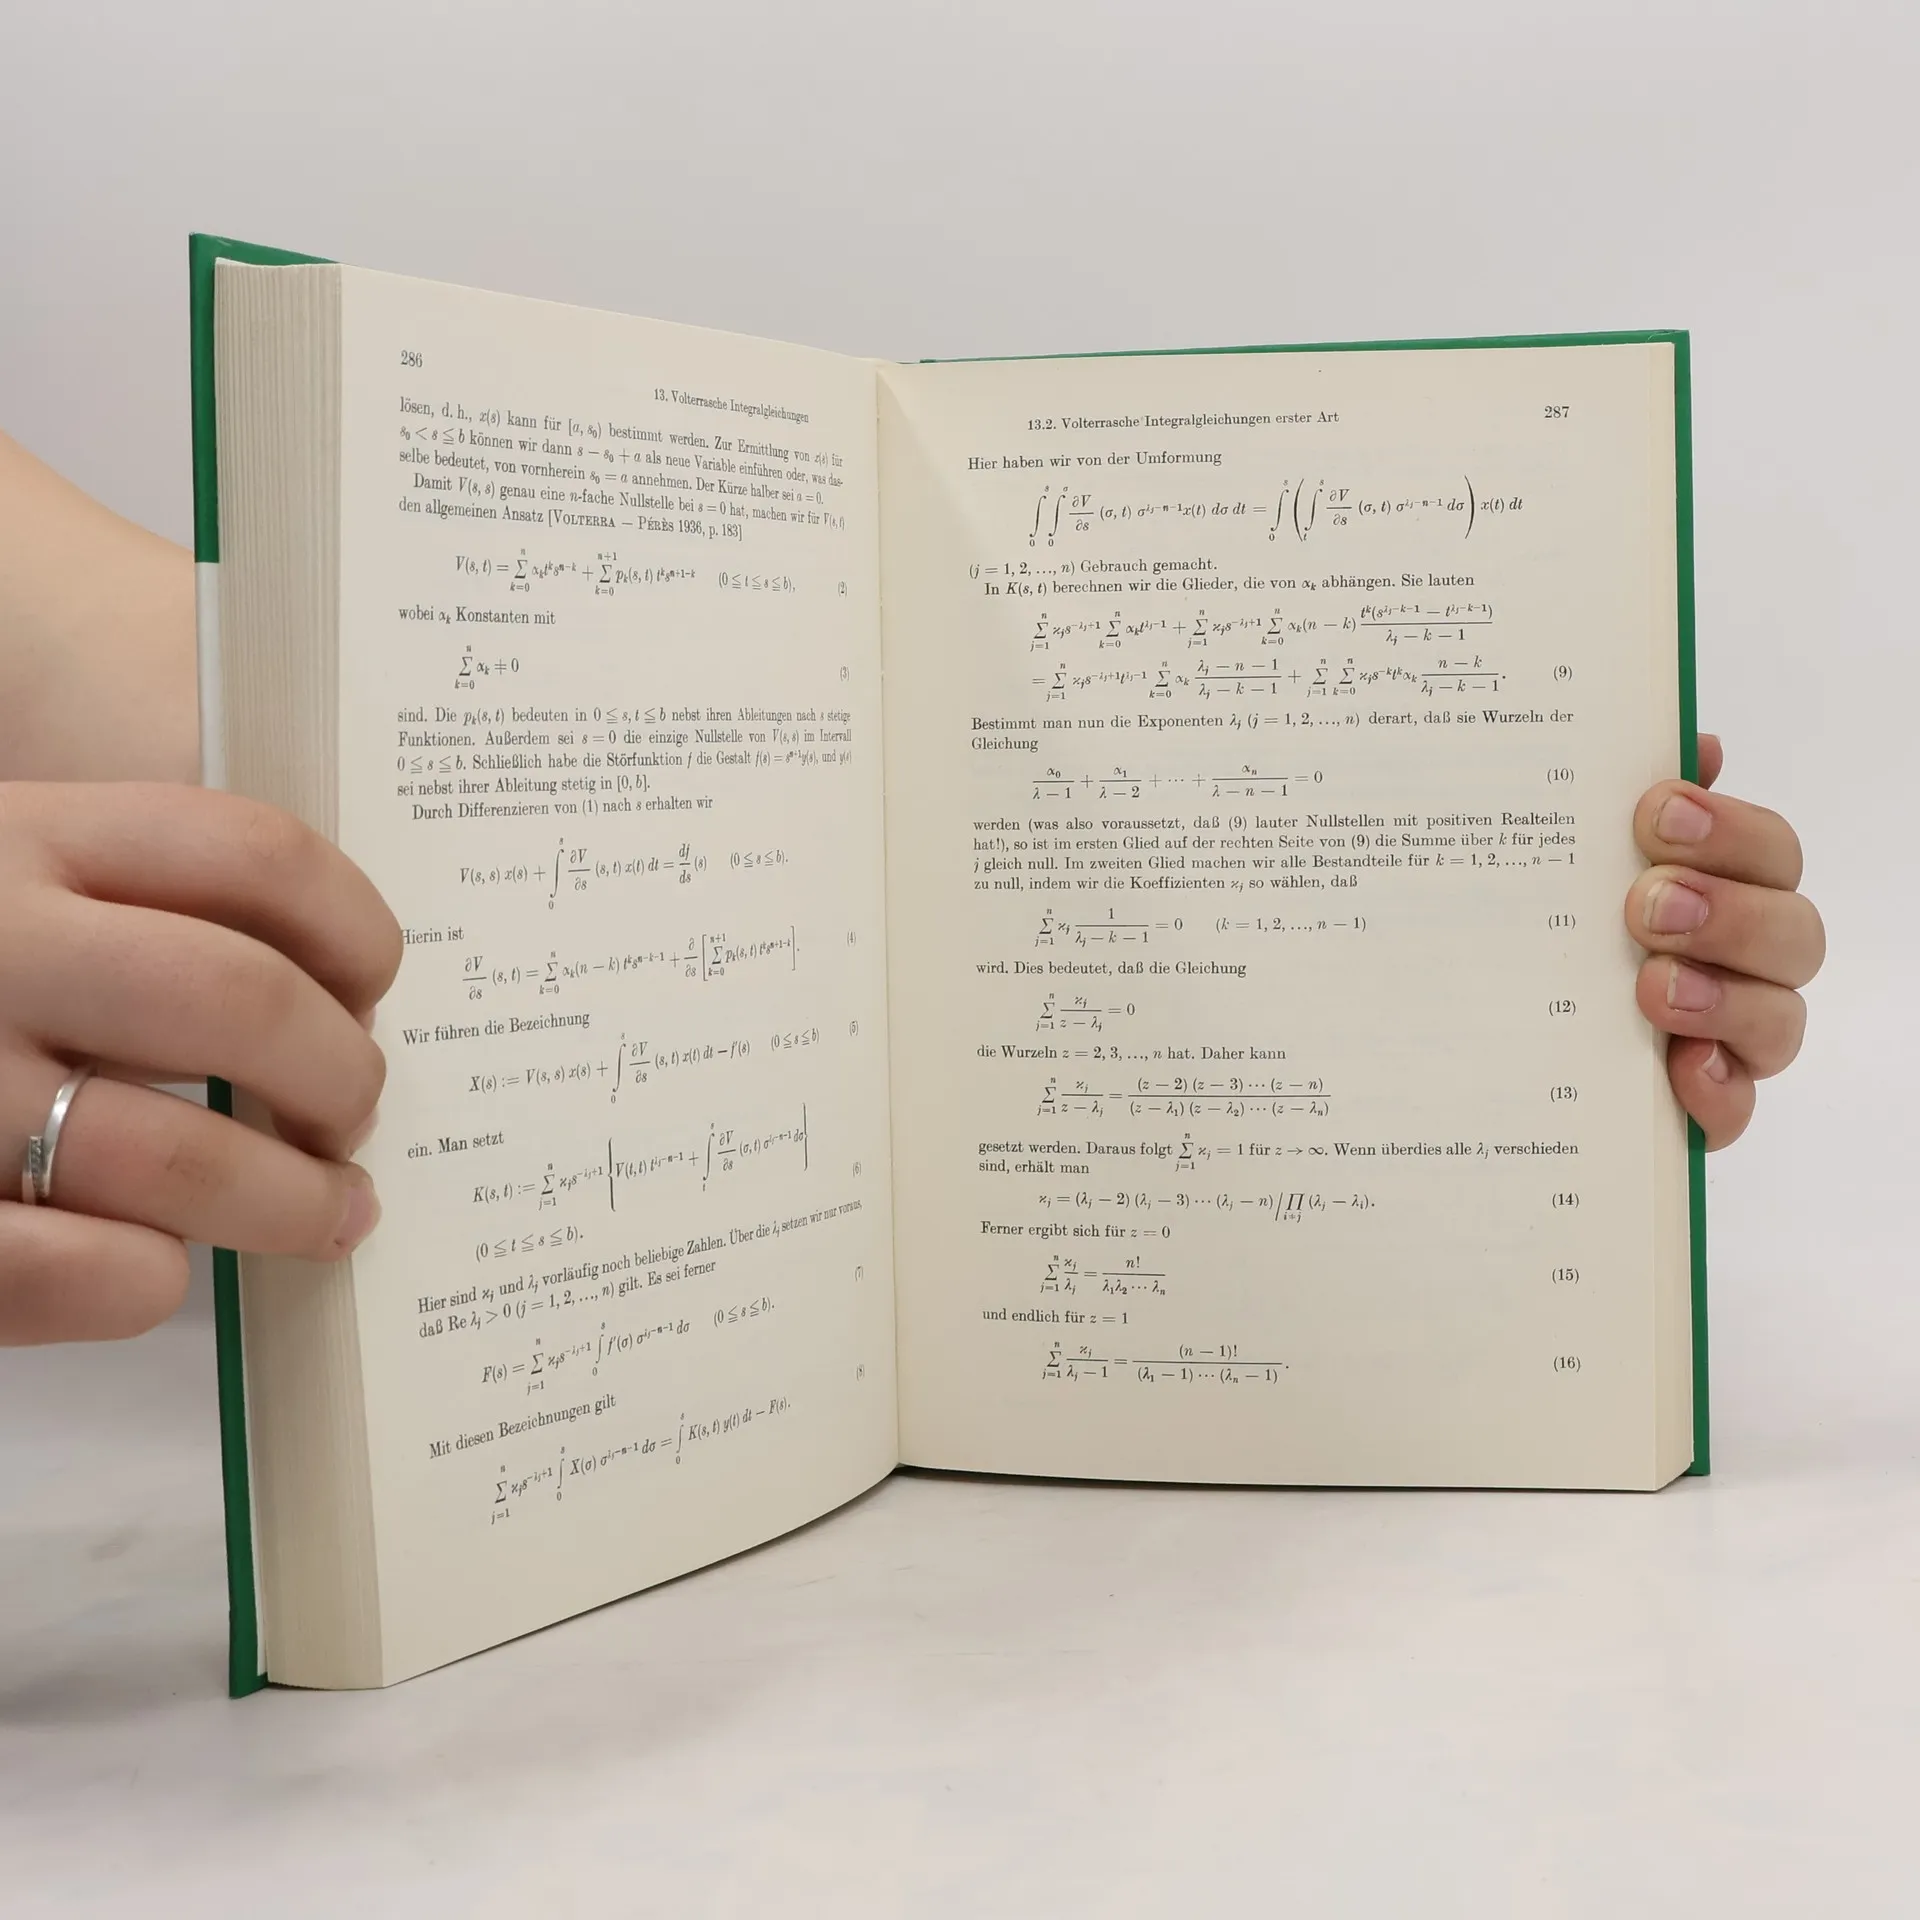 286
13. Volterrasche Integralgleichungen
lösen, d. h., x(s) kann für [a, s₀) bestimmt werden. Zur Ermittlung von x(s) für
s₀ < s ≦ b können wir dann s − s₀ + a als neue Variable einführen oder, was das-
selbe bedeutet, von vornherein s₀ = a annehmen. Der Kürze halber sei a = 0.
Damit V(s, s) genau eine n-fache Nullstelle bei s = 0 hat, machen wir für V(s, t)
den allgemeinen Ansatz [VOLTERRA — PÉRÈS 1936, p. 183]
V(s, t) = ∑_{k=0}^{n} α_k t^k s^{n−k} + ∑_{k=0}^{n+1} p_k(s, t) t^k s^{n+1−k} (0 ≦ t ≦ s ≦ b), (2)
wobei α_k Konstanten mit
∑_{k=0}^{n} α_k ≠ 0 (3)
sind. Die p_k(s, t) bedeuten in 0 ≦ s, t ≦ b nebst ihren Ableitungen nach s stetige
Funktionen. Außerdem sei s = 0 die einzige Nullstelle von V(s, s) im Intervall
0 ≦ s ≦ b. Schließlich habe die Störfunktion f die Gestalt f(s) = s^{n+1}y(s), und y(s)
sei nebst ihrer Ableitung stetig in [0, b].
Durch Differenzieren von (1) nach s erhalten wir
V(s, s) x(s) + ∫_0^s ∂V/∂s (s, t) x(t) dt = df/ds (s) (0 ≦ s ≦ b).
Hierin ist
∂V/∂s (s, t) = ∑_{k=0}^{n} α_k(n − k) t^k s^{n−k−1} + ∂/∂s [∑_{k=0}^{n+1} p_k(s, t) t^k s^{n+1−k}]. (4)
Wir führen die Bezeichnung
X(s) := V(s, s) x(s) + ∫_0^s ∂V/∂s (s, t) x(t) dt − f′(s) (0 ≦ s ≦ b) (5)
ein. Man setzt
K(s, t) := ∑_{j=1}^{n} ϰ_j s^{−λ_j+1} {V(t, t) t^{λ_j−n−1} + ∫_t^s ∂V/∂s (σ, t) σ^{λ_j−n−1} dσ} (6)
(0 ≦ t ≦ s ≦ b).
Hier sind ϰ_j und λ_j vorläufig noch beliebige Zahlen. Über die λ_j setzen wir nur voraus,
daß Re λ_j > 0 (j = 1, 2, …, n) gilt. Es sei ferner (7)
F(s) = ∑_{j=1}^{n} ϰ_j s^{−λ_j+1} ∫_0^s f′(σ) σ^{λ_j−n−1} dσ (0 ≦ s ≦ b).
Mit diesen Bezeichnungen gilt (8)
∑_{j=1}^{n} ϰ_j s^{−λ_j+1} ∫_0^s X(σ) σ^{λ_j−n−1} dσ = ∫_0^s K(s, t) y(t) dt − F(s).
13.2. Volterrasche Integralgleichungen erster Art 287
Hier haben wir von der Umformung
∫_0^s ∫_0^σ ∂V/∂s (σ, t) σ^{λ_j−n−1} x(t) dσ dt = ∫_0^s (∫_t^s ∂V/∂s (σ, t) σ^{λ_j−n−1} dσ) x(t) dt
(j = 1, 2, …, n) Gebrauch gemacht.
In K(s, t) berechnen wir die Glieder, die von α_k abhängen. Sie lauten
∑_{j=1}^{n} ϰ_j s^{−λ_j+1} ∑_{k=0}^{n} α_k t^{λ_j−1} + ∑_{j=1}^{n} ϰ_j s^{−λ_j+1} ∑_{k=0}^{n} α_k(n − k) t^k(s^{λ_j−k−1} − t^{λ_j−k−1})/(λ_j − k − 1)
= ∑_{j=1}^{n} ϰ_j s^{−λ_j+1} t^{λ_j−1} ∑_{k=0}^{n} α_k (λ_j − n − 1)/(λ_j − k − 1) + ∑_{j=1}^{n} ∑_{k=0}^{n} ϰ_j s^{−k} t^k α_k (n − k)/(λ_j − k − 1). (9)
Bestimmt man nun die Exponenten λ_j (j = 1, 2, …, n) derart, daß sie Wurzeln der
Gleichung
α₀/(λ − 1) + α₁/(λ − 2) + ⋯ + α_n/(λ − n − 1) = 0 (10)
werden (was also voraussetzt, daß (9) lauter Nullstellen mit positiven Realteilen
hat!), so ist im ersten Glied auf der rechten Seite von (9) die Summe über k für jedes
j gleich null. Im zweiten Glied machen wir alle Bestandteile für k = 1, 2, …, n − 1
zu null, indem wir die Koeffizienten ϰ_j so wählen, daß
∑_{j=1}^{n} ϰ_j 1/(λ_j − k − 1) = 0 (k = 1, 2, …, n − 1) (11)
wird. Dies bedeutet, daß die Gleichung
∑_{j=1}^{n} ϰ_j/(z − λ_j) = 0 (12)
die Wurzeln z = 2, 3, …, n hat. Daher kann
∑_{j=1}^{n} ϰ_j/(z − λ_j) = (z − 2) (z − 3) ⋯ (z − n)/((z − λ₁) (z − λ₂) ⋯ (z − λ_n)) (13)
gesetzt werden. Daraus folgt ∑_{j=1}^{n} ϰ_j = 1 für z → ∞. Wenn überdies alle λ_j verschieden
sind, erhält man
ϰ_j = (λ_j − 2) (λ_j − 3) ⋯ (λ_j − n)/∏_{i≠j} (λ_j − λ_i). (14)
Ferner ergibt sich für z = 0
∑_{j=1}^{n} ϰ_j/λ_j = n!/(λ₁λ₂ ⋯ λ_n) (15)
und endlich für z = 1
∑_{j=1}^{n} ϰ_j/(λ_j − 1) = (n − 1)!/((λ₁ − 1) ⋯ (λ_n − 1)). (16)